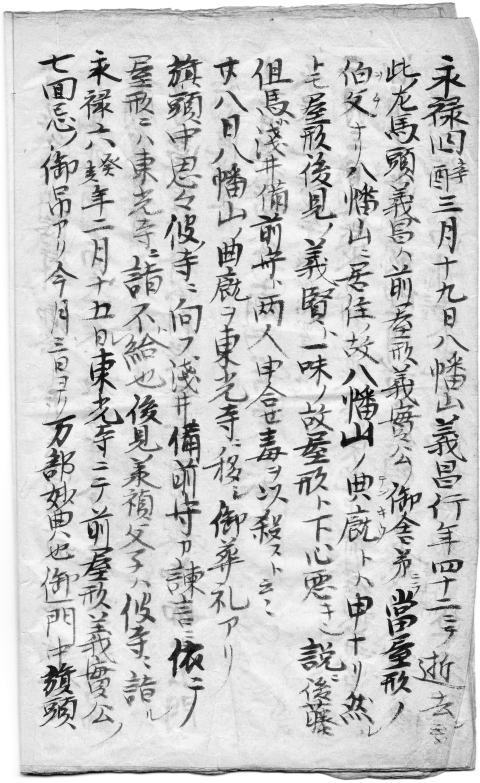 永禄四辛酉三月十九日八幡山義昌行年四十二ニテ逝去ス云云
此左馬頭義昌ハ前屋形義實公ノ御舎弟ニ當屋形ノ
伯父ナリ八幡山ニ居住ノ故八幡山ノ典廐トハ申ナリ然ル
トモ屋形後見ノ義賢ト一味ノ故屋形ト下心悪キ説ニ後藤
但馬浅井備前守ト両人申合セ毒ヲ以殺スト云云
廿八日八幡山ノ典廐ヲ東光寺ニ移シ御葬礼アリ
旗頭中思々彼寺ニ向フ浅井備前守カ諫言ニ依テノ
屋形ニハ東光寺ニ詣不給也後見義禎父子ハ彼寺ニ詣ル
永禄六癸亥年二月十五日東光寺ニテ前屋形義實公ノ
七回忌ノ御吊アリ今月三日ヨリ万部妙典也御一門中旗頭